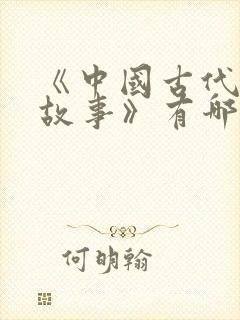 《中國古代
故事》有哪
何明翰